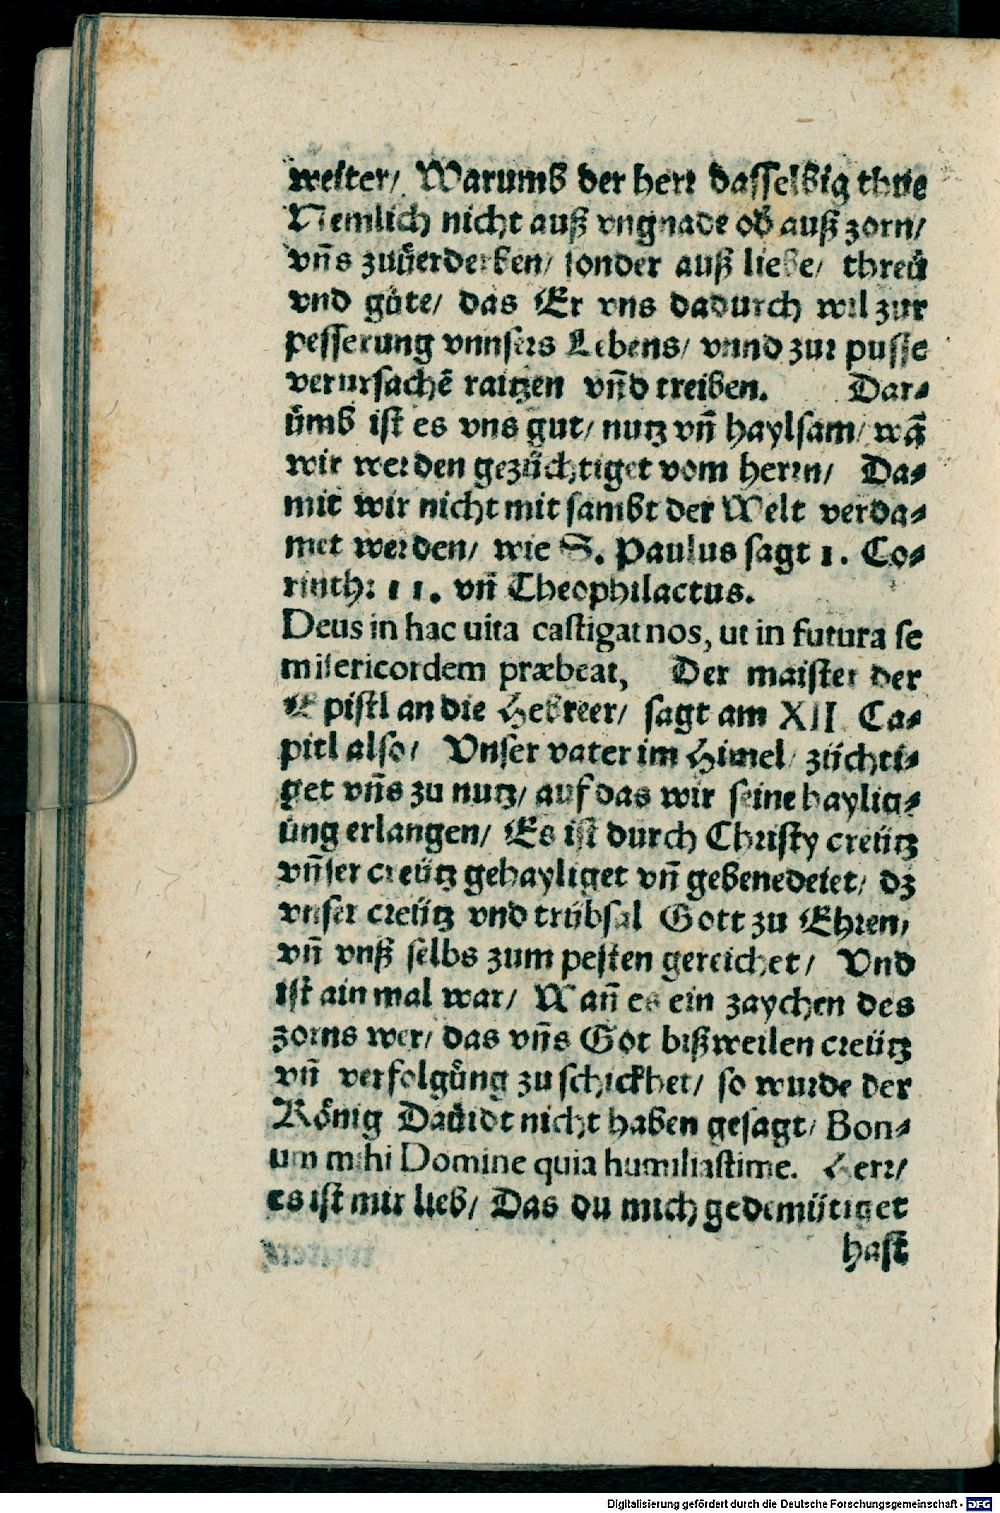 weiter/ Warumb der herr dasselbig thue
Nemlich nicht auß vngnade ob auß zorn/
vn̄s zuůerderben/ sonder auß liebe/ threů
vnd gůte/ das Er vns dadurch wil zur
pesserung vnnsers Lebens/ vnnd zur pusse
verursachē raitzen vn̄d treiben. Dar⸗
ůmb ist es vns gut/ nutz vn̄ haylsam/ wā
wir werden gezüchtiget vom herrn/ Da⸗
mit wir nicht mit sambt der Welt verda⸗
met werden/ wie S. Paulus sagt 1. Co⸗
rinth: 11. vn̄ Theophilactus.
Deus in hac uita castigat nos, ut in futura se
misericordem præbeat, Der maister der
Epistl an die Hebreer/ sagt am XII. Ca⸗
pitl also/ Vnser vater im Himel/ züchti⸗
get vn̄s zu nutz/ auf das wir seine haylig⸗
ůng erlangen/ Es ist durch Christy creütz
vn̄ser creütz gehayliget vn̄ gebenedeiet/ dz
vnser creütz vnd trübsal Gott zu Ehren/
vn̄ vnß selbs zum pesten gereichet/ Vnd
ist ain mal war/ Wan̄ es ein zaychen des
zorns wer/ das vn̄s Got bißweilen creütz
vn̄ verfolgůng zu schickhet/ so wurde der
König Daůidt nicht haben gesagt/ Bon⸗
um mihi Domine quia humiliastime. Herr/
es ist mir lieb/ Das du mich gedemütiget
hast
Digitalisierung gefördert durch die Deutsche Forschungsgemeinschaft - DFG